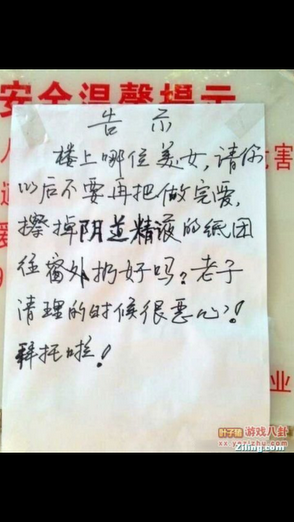 安全温馨提示
告示
楼上哪位美女,请你
以后不要再把做完爱,
擦掉阴道精液的纸团
往窗外扔好吗?老子
清理的时候很恶心!
拜托啦!
危害
业
叶子猪 游戏八卦
xx.yezizhu.com
2liang.com